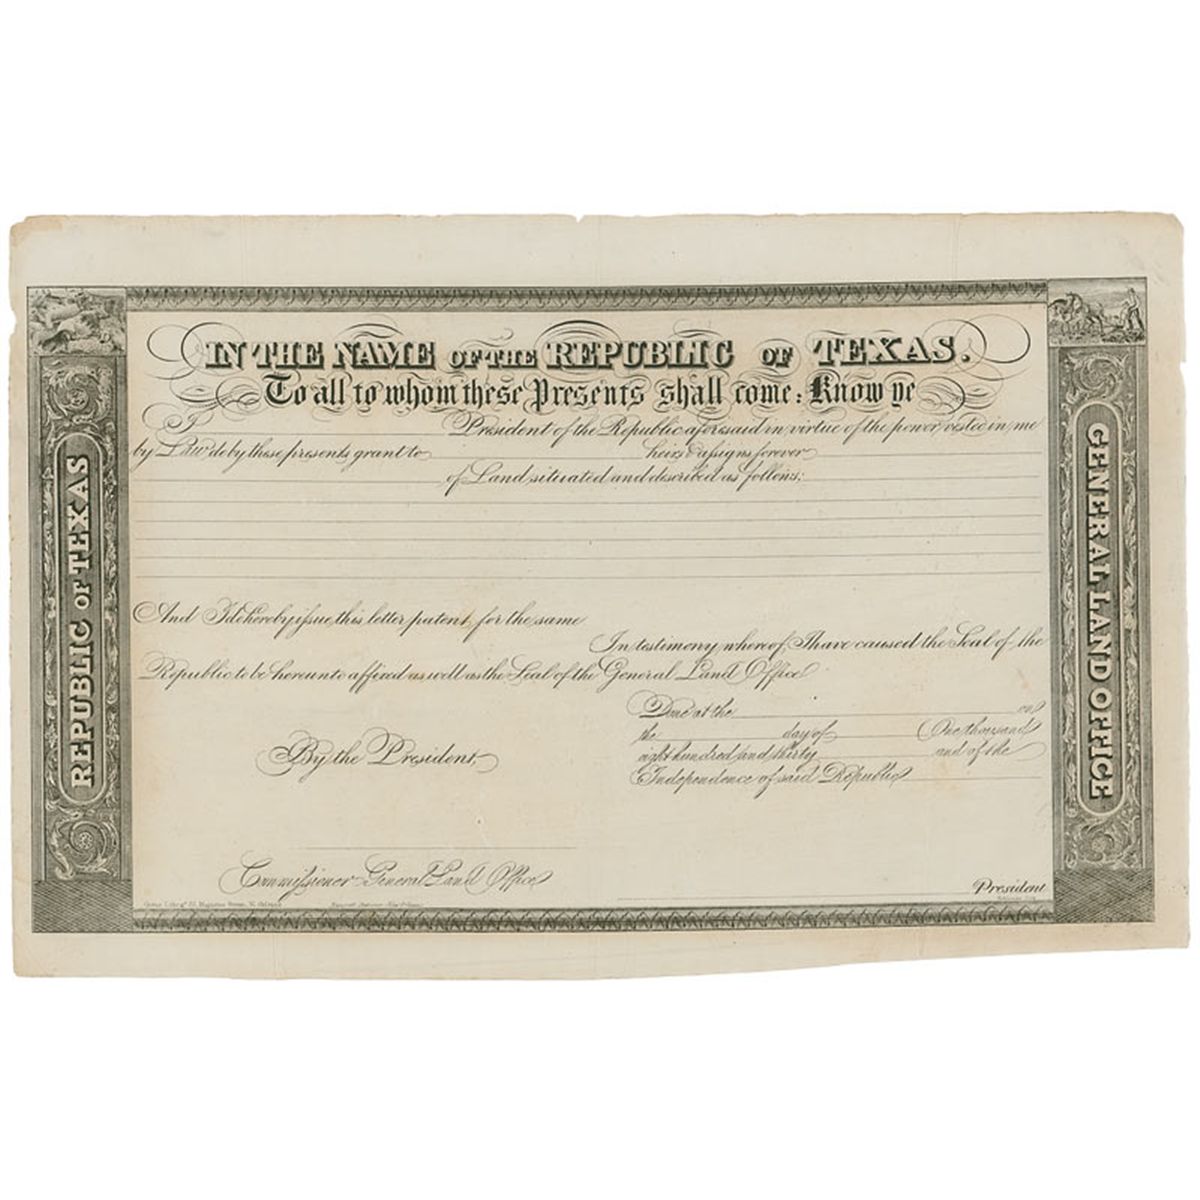 IN THE NAME OF THE REPUBLIC OF TEXAS.
To all to whom these Presents shall come: Know ye
I President of the Republic aforesaid in virtue of the power vested in me
by Law do by these presents grant to heirs & assigns forever
of Land situated and described as follows:
And I do hereby issue this letter patent for the same
In testimony whereof I have caused the Seal of the
Republic to be hereunto affixed as well as the Seal of the General Land Office
Done at the on
the day of One thousand
eight hundred and thirty and of the
Independence of said Republic
By the President,
Commissioner General Land Office
President
REPUBLIC OF TEXAS
GENERAL LAND OFFICE